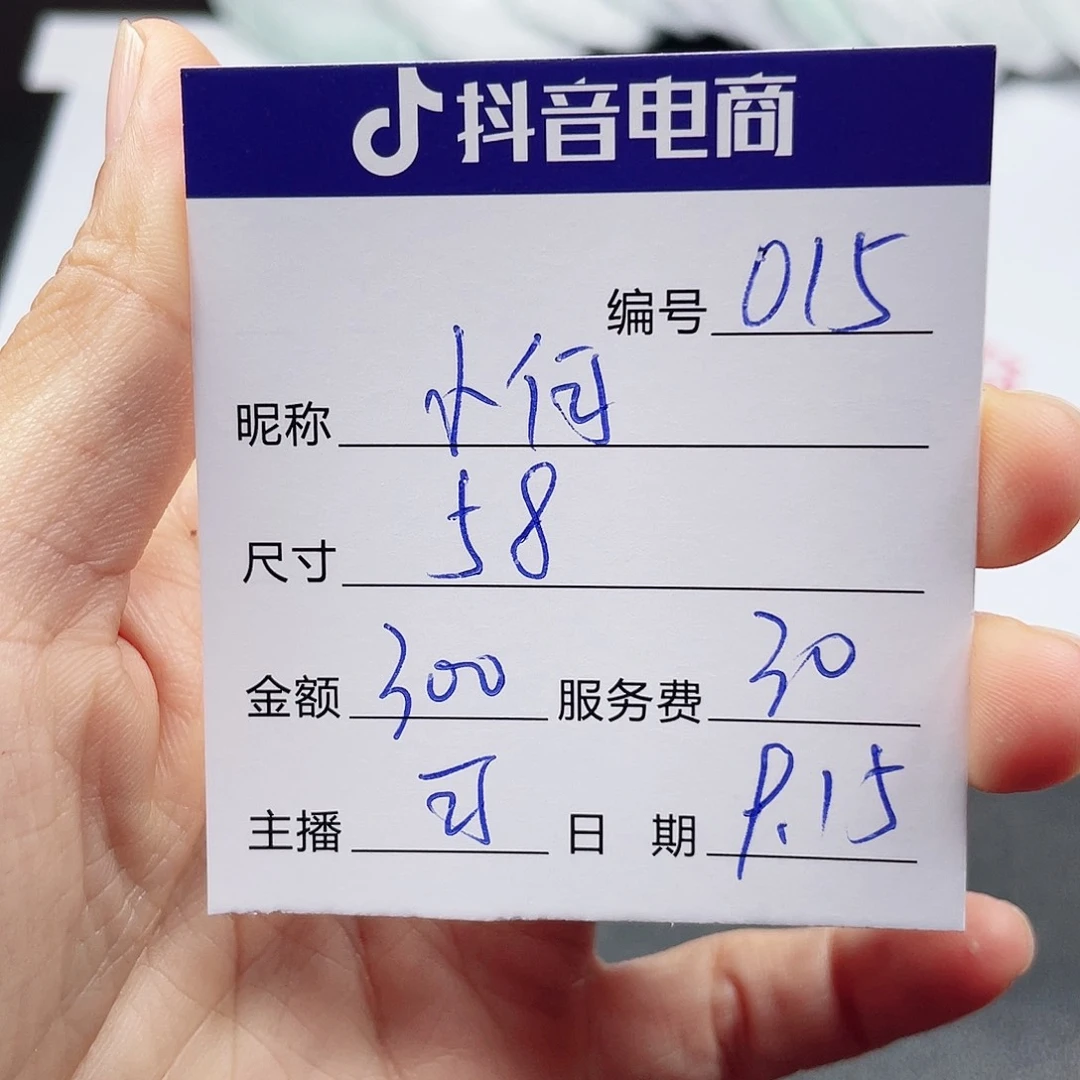 抖音电商
编号 015
昵称 小何
尺寸 58
金额 300 服务费 30
主播 可 日 期 9.15